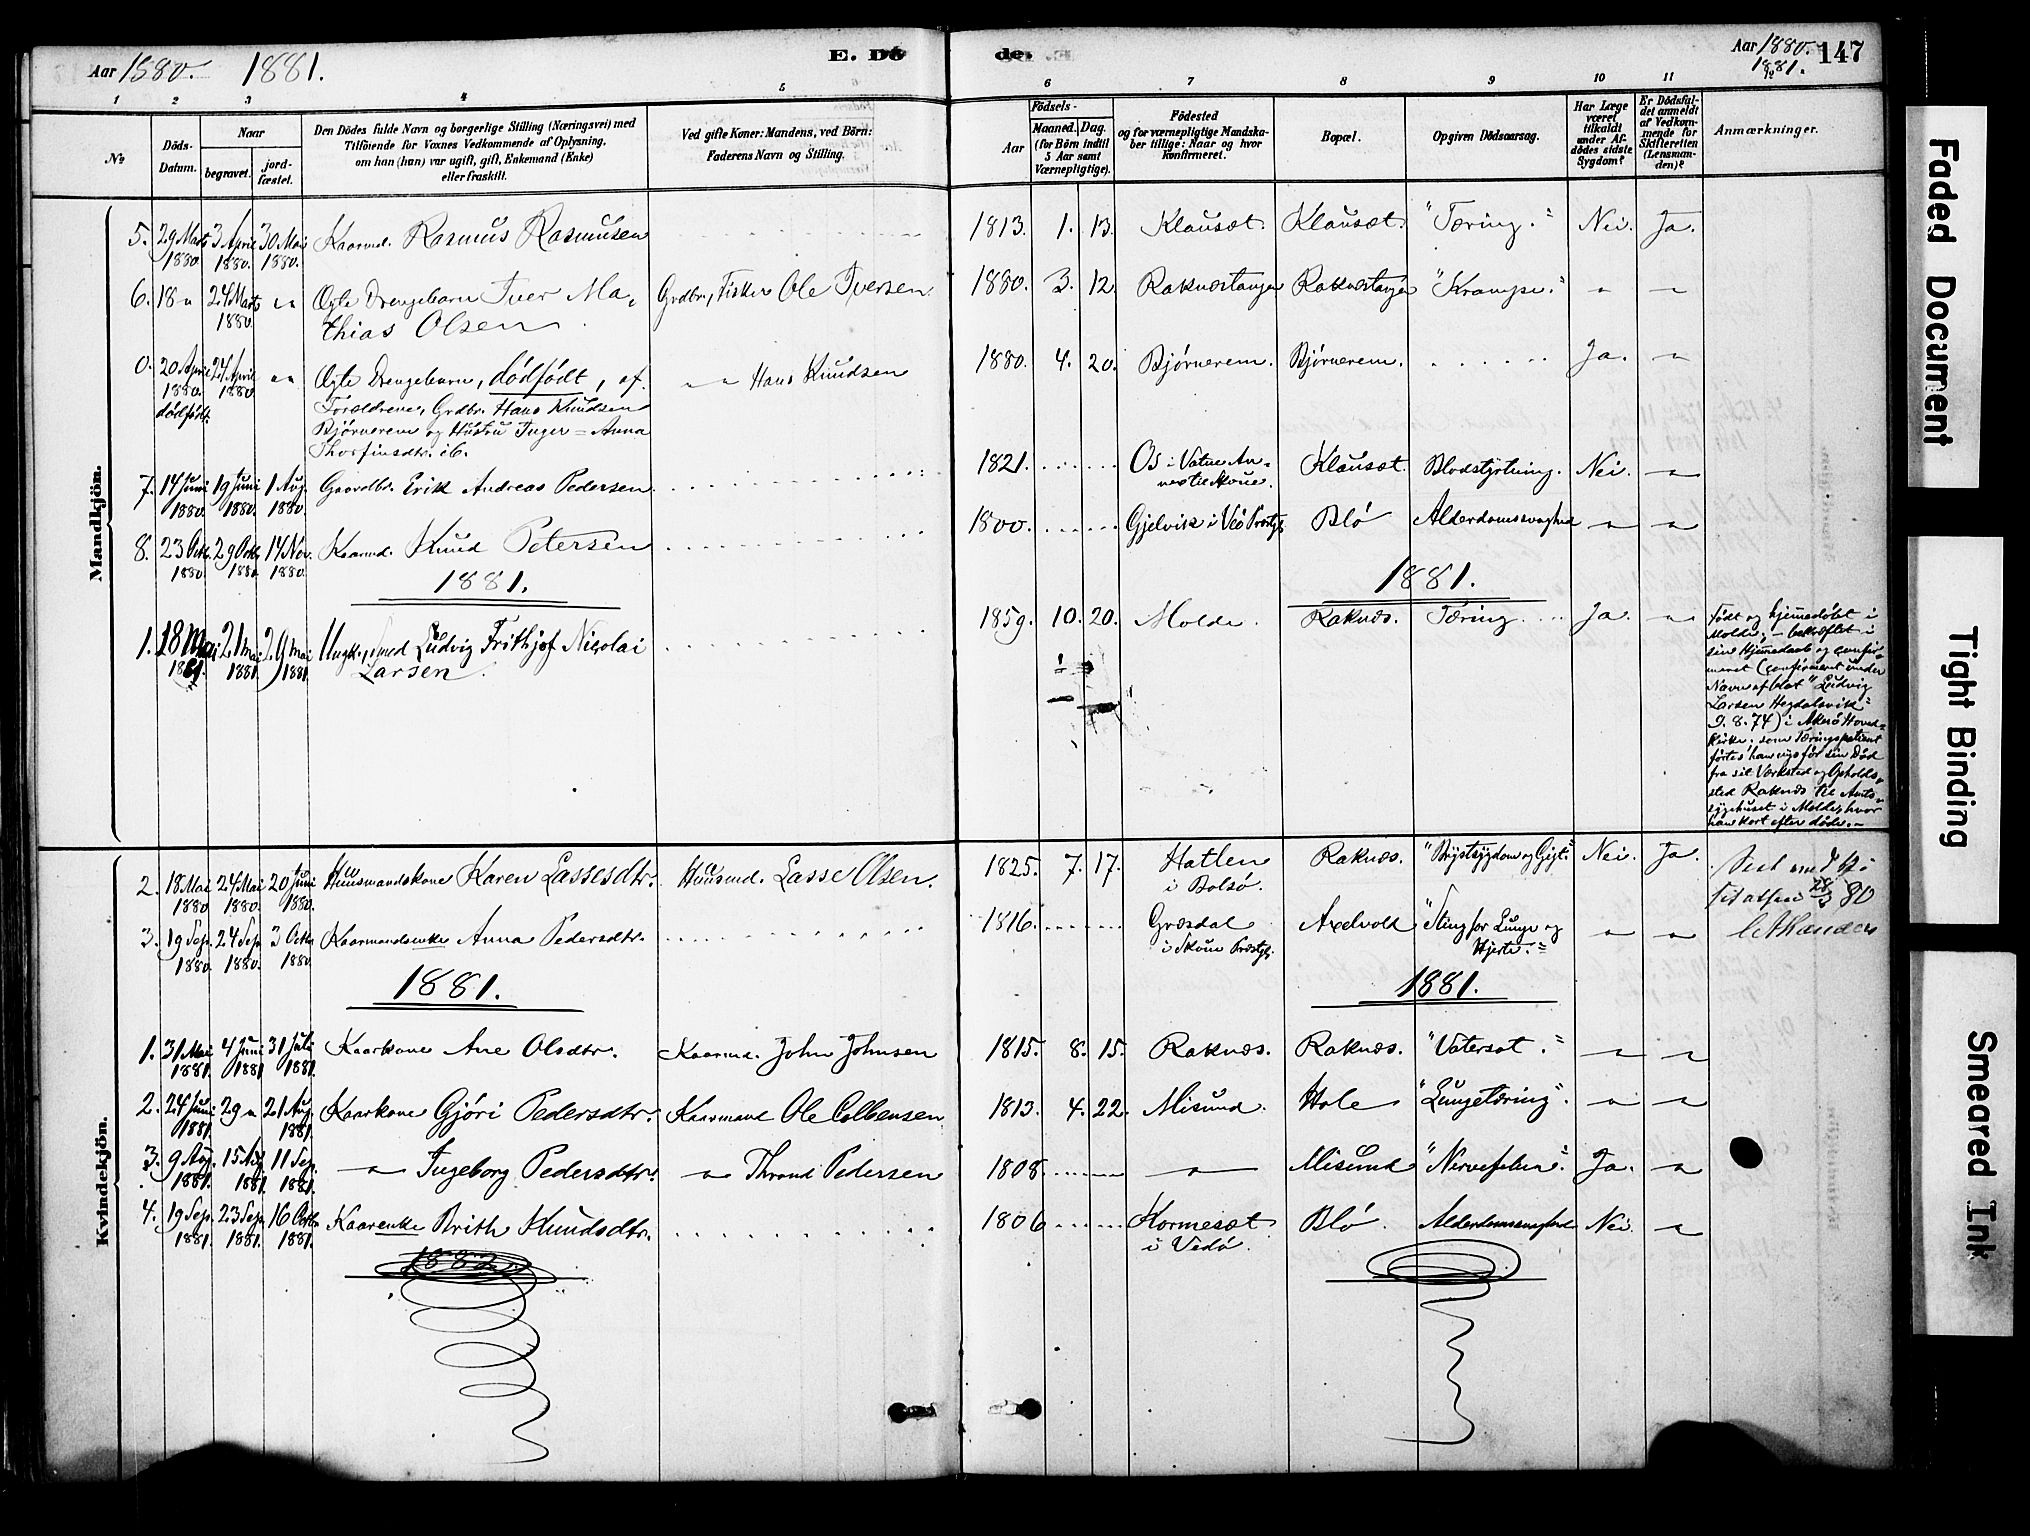 Aar 1880. 1881. E. Dö
de.
Aar 1880. 147
1881.
1 2 3 4 5
6 7 8 9 10 11
№
Döds-
Datum.
Naar
begravet.
jord-
fæstet.
Den Dödes fulde Navn og borgerlige Stilling (Næringsvei) med
Tilföiende for Voxnes Vedkommende af Oplysning,
om han (hun) var ugift, gift, Enkemand (Enke)
eller fraskilt.
Ved gifte Koner: Mandens, ved Börn:
Faderens Navn og Stilling.
Födsels-
Aar
Maaned. Dag.
(for Börn indtil
5 Aar samt
Værnepligtige).
Födested
og for værnepligtige Mandska-
ber tillige: Naar og hvor
konfirmeret.
Bopæl.
Opgiven Dödsaarsag.
Har Læge
været
tilkaldt
under Af-
dödes sidste
Sygdom?
Er Dödsfal-
det anmeldt
af Vedkom-
mende for
Skifteretten
(Lensman-
den)?
Anmærkninger.
Mandkjön.
5. 29 Marts 3 April 30 Mai Kaarmd. Rasmus Rasmusen 1813. 1. 13. Klauset. Klauset. "Tæring." Nei. Ja.
1880. 1880. 1880.
6. 18 " 24 Marts " Ægte Drengebarn Iver Ma- Grdbr., Fisker Ole Iversen 1880. 3. 12. Raknestangen Raknestangen "Krampe." " "
1880. thias Olsen
0. 20 April 27 April " Ægte Drengebarn, dødfødt, af " " Hans Knudsen 1880. 4. 20. Bjørnerem. Bjørnerem. Ja. "
1880. 1880. Forældrene, Grdbr. Hans Knudsen
dødfødt. Bjørnerem og Hustru Inger-Anna
Thorfinsdtr. ib.
7. 14 Juni 19 Juni 1 Aug. Gaardbr. Erik Andreas Pedersen 1821. Os i Vatne An- Klauset. Blodstyrtning. Nei. "
1880. 1880. 1880. nex til Skoue.
8. 23 Octb. 29 Octb. 14 Nov. Kaarmd. Knud Petersen 1800. Gjelvik i Veø Præstgj. Blø Alderdomssvaghed " "
1880. 1880. 1880.
1881. 1881.
1. 18 Mai 21 Mai 29 Mai Ungk., smed Ludvig Frithjof Nicolai 1859. 10. 20. Molde. Raknes. Tæring. Ja. "
1881. 1881. 1881. Larsen.
Født og hjemmedøbt i
Molde; - bekræftet i
sin Hjemmedaab og confir-
meret (confirmeret under
Navn af blot "Ludvig
Larsen Hegdalsvik"
9. 8. 74) i Akerø Hoved-
kirke. som Tæringspatient
førtes han nys før sin Død
fra sit Værksted og Opholds-
sted Raknes til Amts-
sygehuset i Molde, hvor
han kort efter døde.-
Kvindekjön.
2. 18 Mai 24 Mai 20 Juni Huusmandskone Karen Lassesdtr. Huusmd. Lasse Olsen. 1825. 7. 17. Hatlen Raknes. "Brystsygdom og Gigt." Nei. Ja.
1880 1880. 1880. i Bolsø.
3. 19 Sep. 24 Sep. 3 Octbr Kaarmandsenke Anna Pedersdtr. 1816. Grøsdal Axelvold "Sting for Lunge og " "
1880. 1880. 1880. i Skoue Præstgj. Hjerte."
1881. 1881.
1. 31 Mai 4 Juni 31 Juli Kaarkone Ane Olsdtr. Kaarmd. John Johnsen 1815. 8. 15. Raknes. Raknes. "Vatersot." " "
1881. 1881 1881.
2. 24 Juni 29 " 21 Aug. Kaarkone Gjøri Pedersdtr. Kaarmand Ole Colbensen 1813. 4. 22. Misund. Hole "Lungetæring." " "
1881. 1881.
3. 9 Aug. 15 Aug. 11 Sep. " Ingeborg Pedersdtr. " Thrond Pedersen 1808. " Misund "Nervefeber." Ja. "
1881. 1881. 1881.
4. 19 Sep. 23 Sep. 16 Octbr Kaarenke Brith Knudsdtr. 1806 Hormeset Blø. Alderdomssvaghed Nei. "
1881. 1881. 1881. i Vedø.
1882.
Faded Document
Tight Binding
Smeared Ink